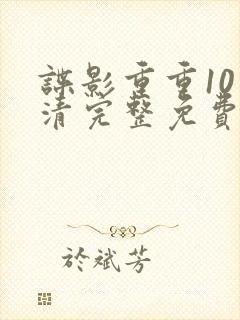 諜影重重10
清完整免費
於斌芳